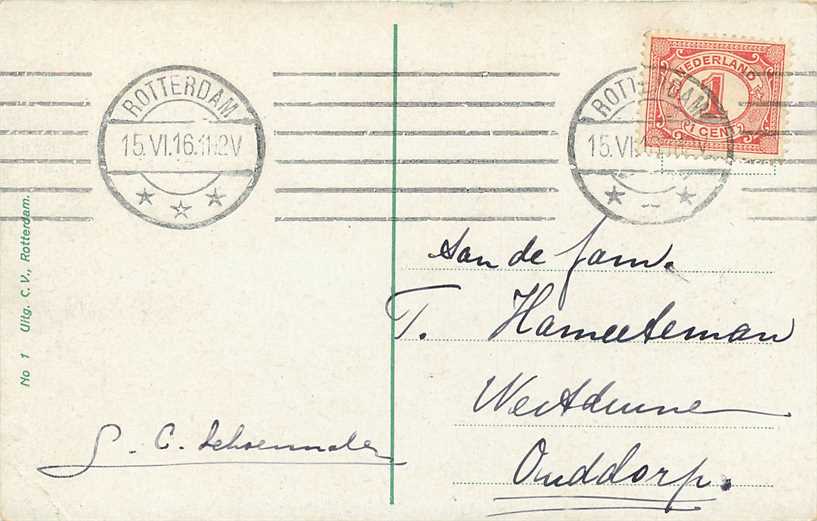 ROTTERDAM
15.VI.16.11-12V
ROTTERDAM
15.VI.1
NEDERLAND
1
CENT
Aan de fam.
T. Hameeteman
Westduine
Ouddorp.
No 1 Uitg. C. V., Rotterdam.
C.